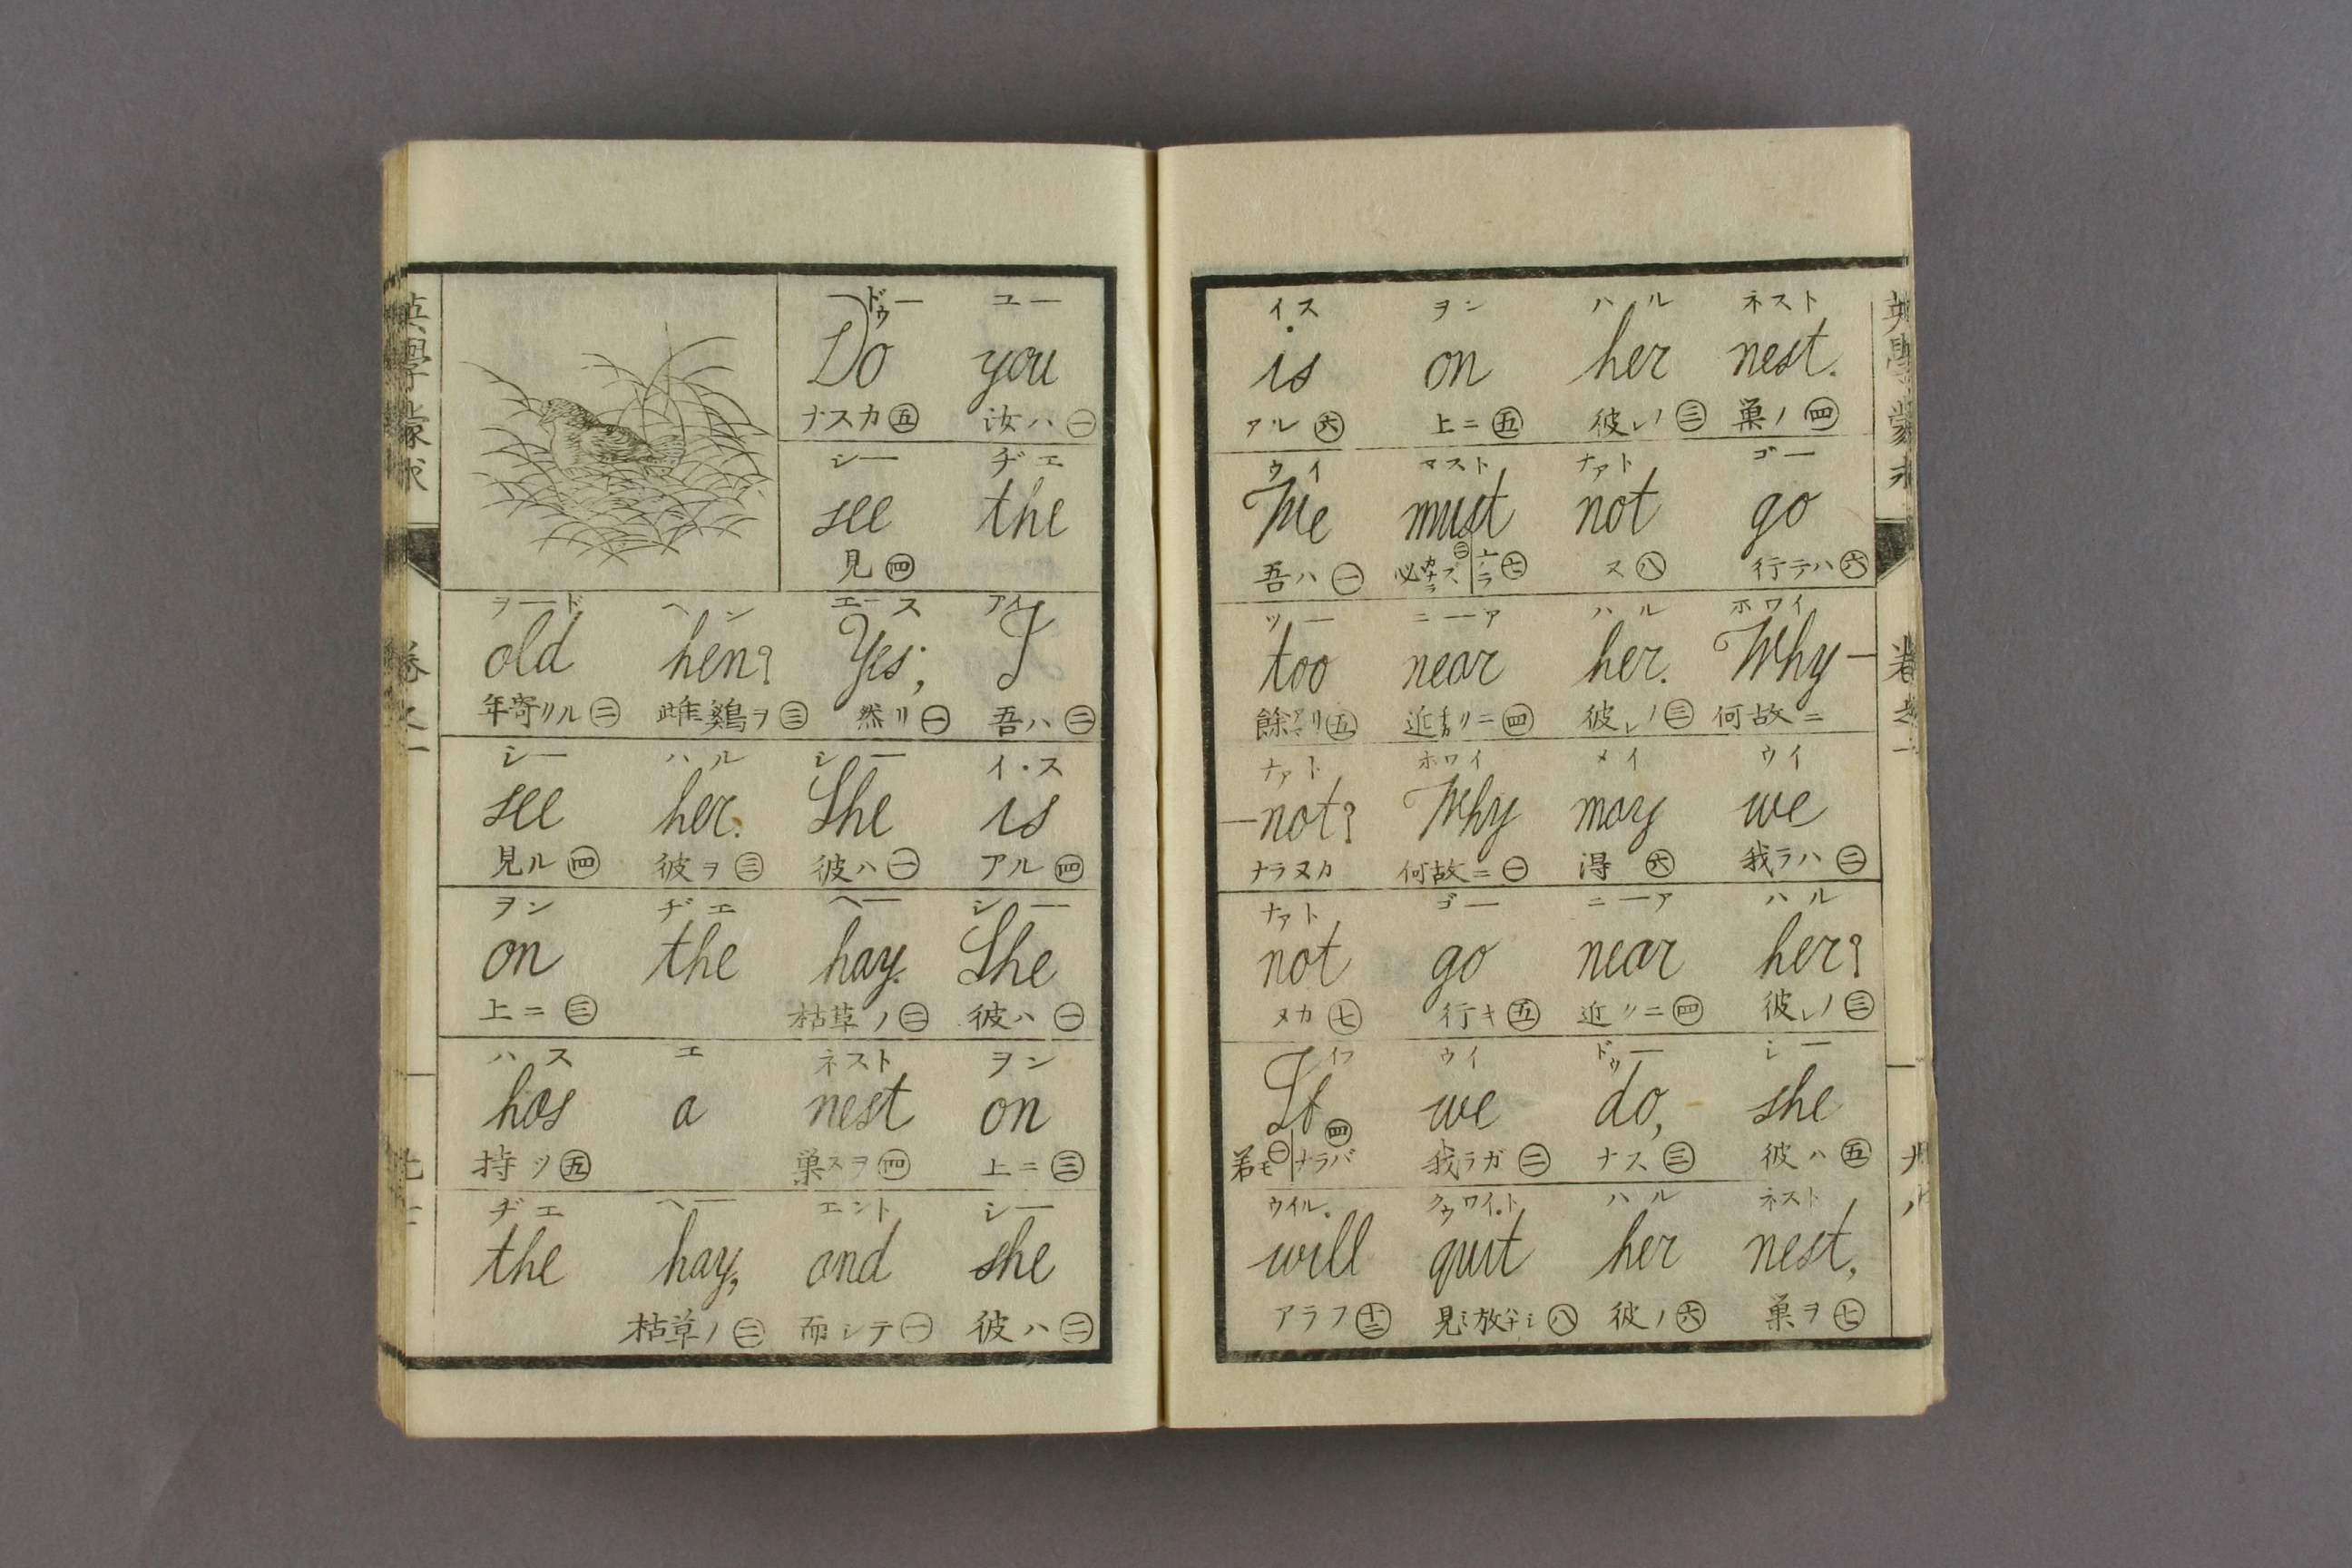 英學蒙求
卷之一
ドゥー ユー
Do you
ナスカ 五 汝ハ 一
シー ヂエ
see the
見 四
ヲード ヘン エース アイ
old hen? Yes; I
年寄リル 二 雌鷄ヲ 三 然リ 一 吾ハ 二
シー ハル シー イ・ス
see her. She is
見ル 四 彼ヲ 三 彼ハ 一 アル 四
ヲン ヂエ ヘー シー
on the hay. She
上ニ 三 枯草ノ 二 彼ハ 一
ハス エ ネスト ヲン
has a nest on
持ツ 五 巣スヲ 四 上ニ 三
ヂエ ヘー エント シー
the hay, and she
枯草ノ 二 而シテ 一 彼ハ 二
イス ヲン ハル ネスト
is on her nest.
アル 六 上ニ 五 彼レノ 三 巣ノ 四
ウイ マスト ナァト ゴー
We must not go
吾ハ 一 必 三 七 ス 八 行テハ 六
ツー ニーア ハル ホワイ
too near her. Why-
餘リ 五 近リニ 四 彼レノ 三 何故ニ
ナァト ホワイ メイ ウイ
-not? Why may we
ナラヌカ 何故ニ 一 得 六 我ラハ 二
ナァト ゴー ニーア ハル
not go near her?
ヌカ 七 行キ 五 近リニ 四 彼レノ 三
イフ ウイ ドゥー シー
If we do, she
若モ 一 ナラバ 四 我ラガ 二 ナス 三 彼ハ 五
ウイル クゥワイト ハル ネスト
will quit her nest,
アラフ 十二 見放 八 彼ノ 六 巣ヲ 七
英學蒙求